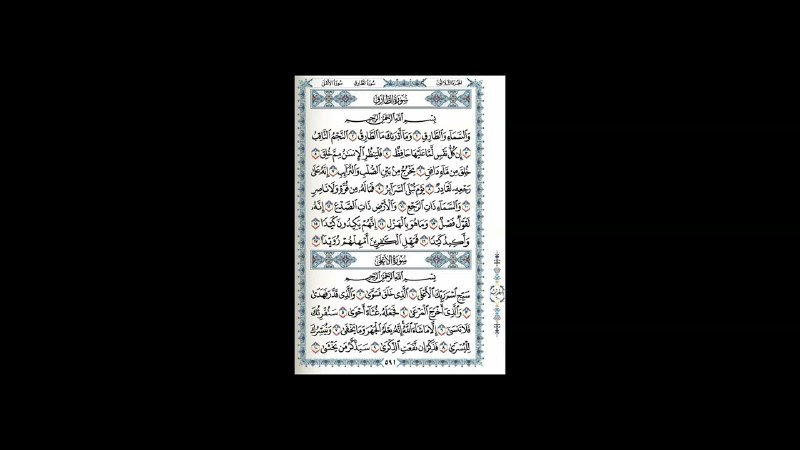 الجزء الثلاثون سورة الطارق سورة الأعلى
سورة الطارق
بِسْمِ اللَّهِ الرَّحْمَٰنِ الرَّحِيمِ
وَالسَّمَاءِ وَالطَّارِقِ ١ وَمَا أَدْرَاكَ مَا الطَّارِقُ ٢ النَّجْمُ الثَّاقِبُ
٣ إِن كُلُّ نَفْسٍ لَّمَّا عَلَيْهَا حَافِظٌ ٤ فَلْيَنظُرِ الْإِنسَٰنُ مِمَّ خُلِقَ ٥
خُلِقَ مِن مَّاءٍ دَافِقٍ ٦ يَخْرُجُ مِن بَيْنِ الصُّلْبِ وَالتَّرَائِبِ ٧ إِنَّهُ عَلَىٰ
رَجْعِهِ لَقَادِرٌ ٨ يَوْمَ تُبْلَى السَّرَائِرُ ٩ فَمَا لَهُ مِن قُوَّةٍ وَلَا نَاصِرٍ
١٠ وَالسَّمَاءِ ذَاتِ الرَّجْعِ ١١ وَالْأَرْضِ ذَاتِ الصَّدْعِ ١٢ إِنَّهُ
لَقَوْلٌ فَصْلٌ ١٣ وَمَا هُوَ بِالْهَزْلِ ١٤ إِنَّهُمْ يَكِيدُونَ كَيْدًا ١٥
وَأَكِيدُ كَيْدًا ١٦ فَمَهِّلِ الْكَٰفِرِينَ أَمْهِلْهُمْ رُوَيْدًا ١٧
سورة الأعلى
بِسْمِ اللَّهِ الرَّحْمَٰنِ الرَّحِيمِ
سَبِّحِ اسْمَ رَبِّكَ الْأَعْلَى ١ الَّذِي خَلَقَ فَسَوَّىٰ ٢ وَالَّذِي قَدَّرَ فَهَدَىٰ
٣ وَالَّذِي أَخْرَجَ الْمَرْعَىٰ ٤ فَجَعَلَهُ غُثَاءً أَحْوَىٰ ٥ سَنُقْرِئُكَ
فَلَا تَنسَىٰ ٦ إِلَّا مَا شَاءَ اللَّهُ إِنَّهُ يَعْلَمُ الْجَهْرَ وَمَا يَخْفَىٰ ٧ وَنُيَسِّرُكَ
لِلْيُسْرَىٰ ٨ فَذَكِّرْ إِن نَّفَعَتِ الذِّكْرَىٰ ٩ سَيَذَّكَّرُ مَن يَخْشَىٰ ١٠
٥٩١